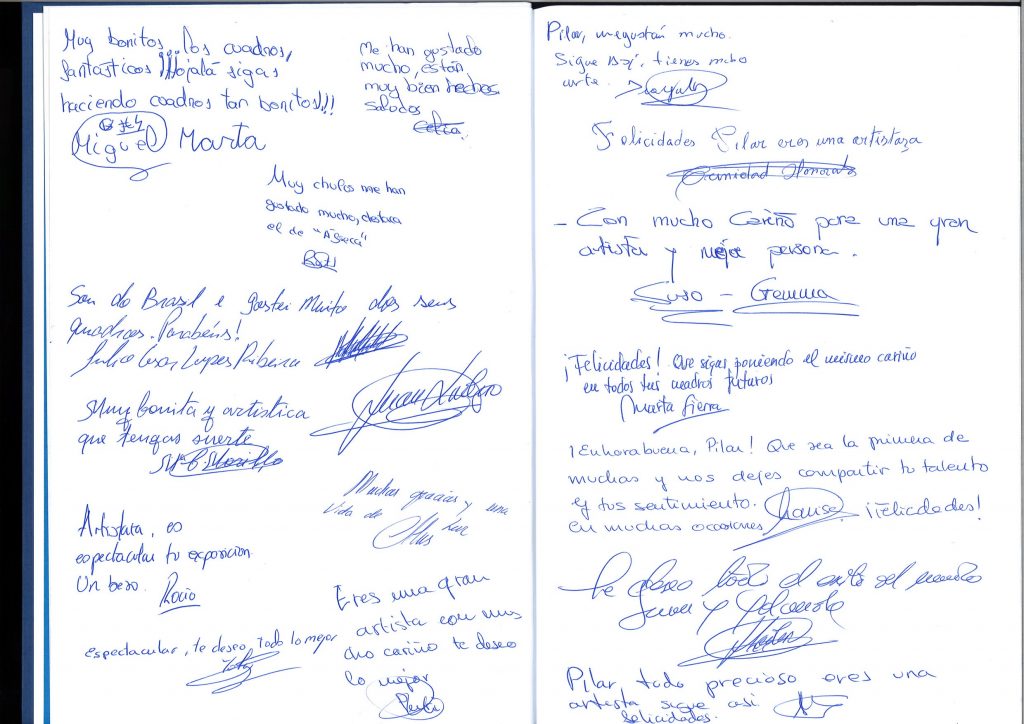 Muy bonitos... los cuadros,
fantasticos!!! Ojalá sigas
haciendo cuadros tan bonitos!!!
Miguel Marta
Me han gustado
mucho, están
muy bien hechos.
saludos
Celia.
Muy chulos me han
gustado mucho,
el de
Sou do Brasil e gostei muito dos seus
quadros. Parabéns!
Julio Cesar Lopes Ribeiro
Muy bonita y artistica
que tengas suerte
Mª C. Morillo
Muchas gracias y una
Vida de
Artistaza, es
espectacular tu exposicion.
Un beso. Rocio
espectacular, te deseo, todo lo mejor
Eres una gran
artista con mu
cho cariño te deseo
lo mejor
Pilar, me gustan mucho.
Sigue así, tienes mcho
arte.
Felicidades Pilar eres una artistaza
Trinidad Honorato
- Con mucho Cariño para una gran
artista y mejor persona.
Suso - Gemma
¡Felicidades! Que sigas poniendo el mismo cariño
en todos tus cuadros futuros
Marta Sierra
¡Enhorabuena, Pilar! Que sea la primera de
muchas y nos dejes compartir tu talento
y tus sentimiento.
en muchas ocasiones ¡Felicdades!
Te deseo todo el exito del mundo
Juan y
Pilar, todo precioso eres una
artista sigue asi
felicidades.